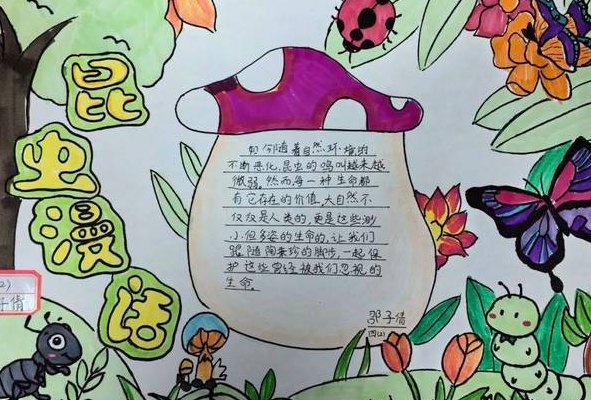 昆虫漫话
如今随着自然环境的
不断恶化,昆虫的鸣叫越来越
微弱。然而每一种生命都
有它存在的价值,大自然不
仅仅是人类的,更是这些渺
小但多姿的生命的,让我们
跟随陶秉珍的脚步,一起保
护这些曾经被我们忽视的
生命。
邵子倩
四(2)
2)
子倩